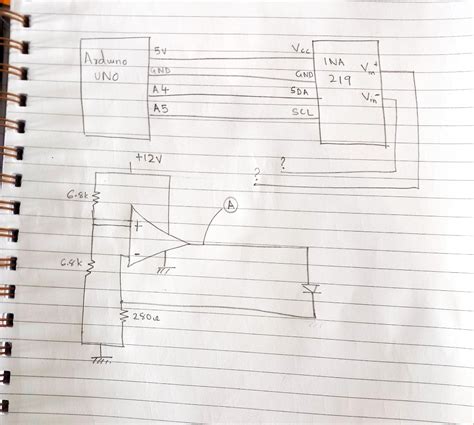 Arduino
UNO
5V
GND
A4
A5
Vcc
GND
SDA
SCL
INA
219
Vin+
Vin-
?
?
+12V
6.8k
6.8k
+
-
A
280Ω